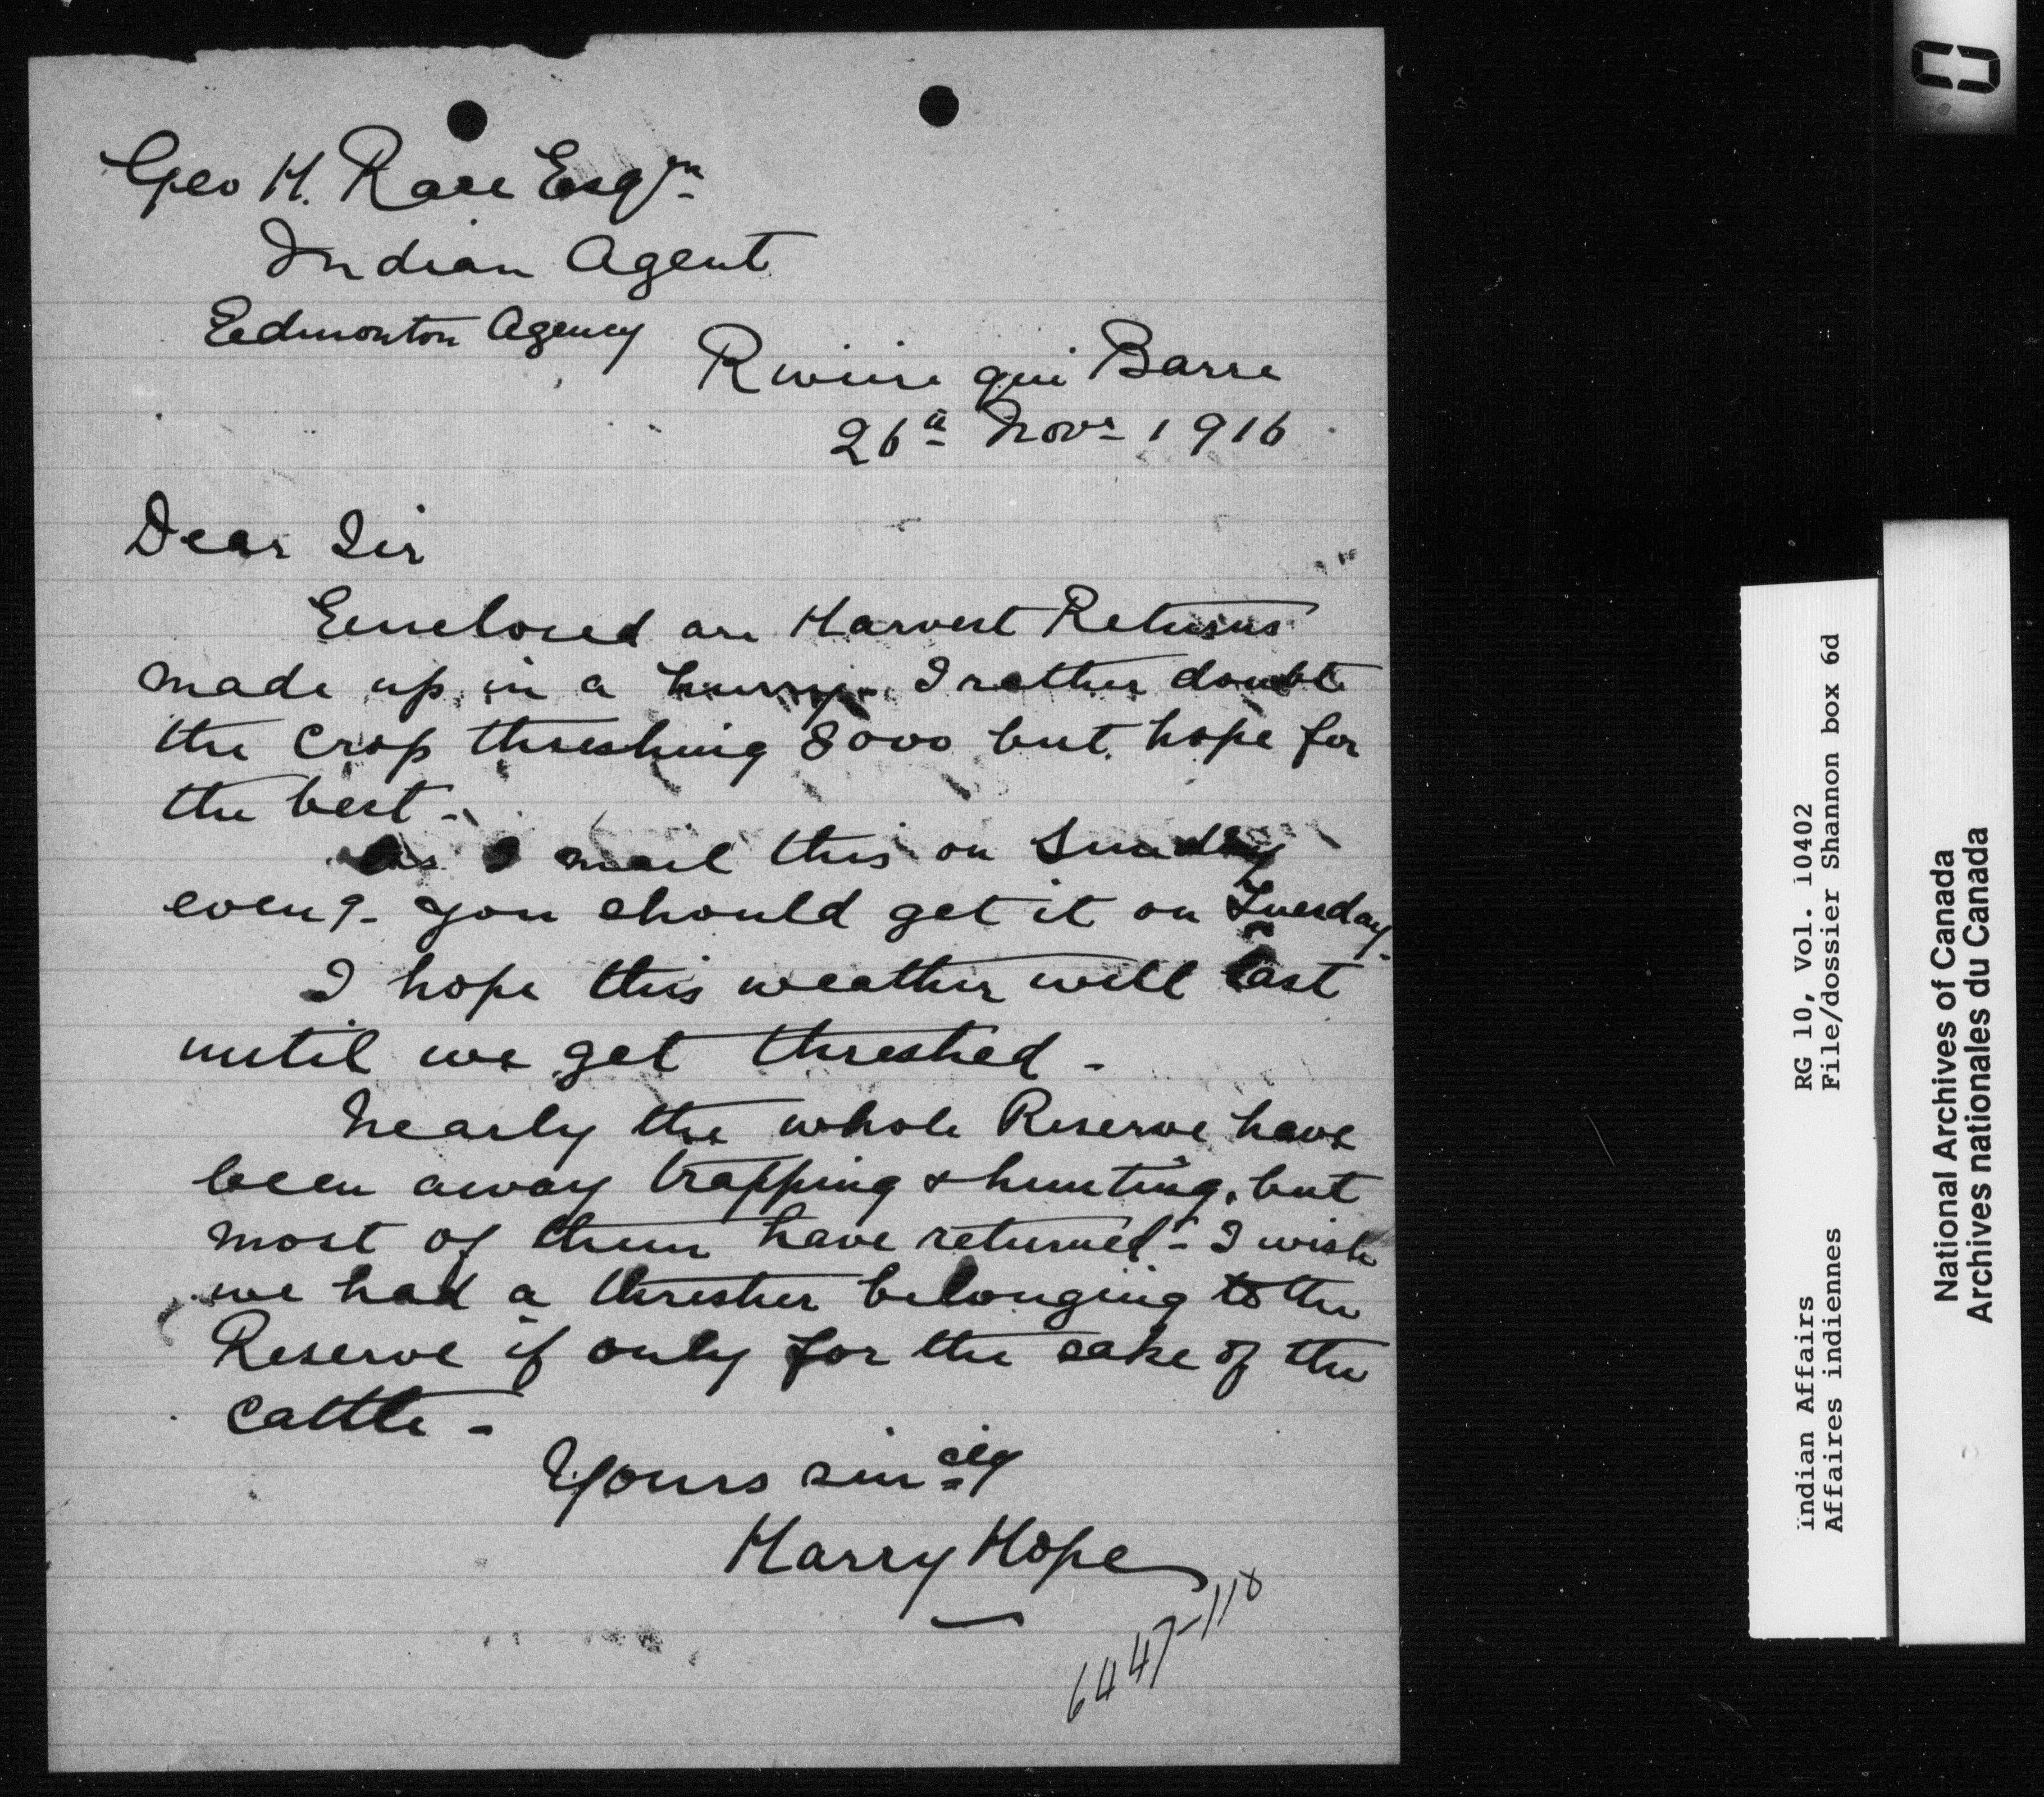 Geo H. Race Esqre
Indian Agent
Edmonton Agency
Riviere qui Barre
26th Novr 1916
Dear Sir
Enclosed are Harvest Returns
made up in a hurry. I rather doubt
the crop threshing 8000 but hope for
the best -
As I mail this on Sunday
eveng - you should get it on Tuesday.
I hope this weather will last
until we get threshed -
Nearly the whole Reserve have
been away trapping & hunting, but
most of them have returned - I wish
we had a thresher belonging to the
Reserve if only for the sake of the
cattle -
Yours sincely
Harry Hope
6447-118
0
Indian Affairs RG 10, Vol. 10402
Affaires indiennes File/dossier Shannon box 6d
National Archives of Canada
Archives nationales du Canada